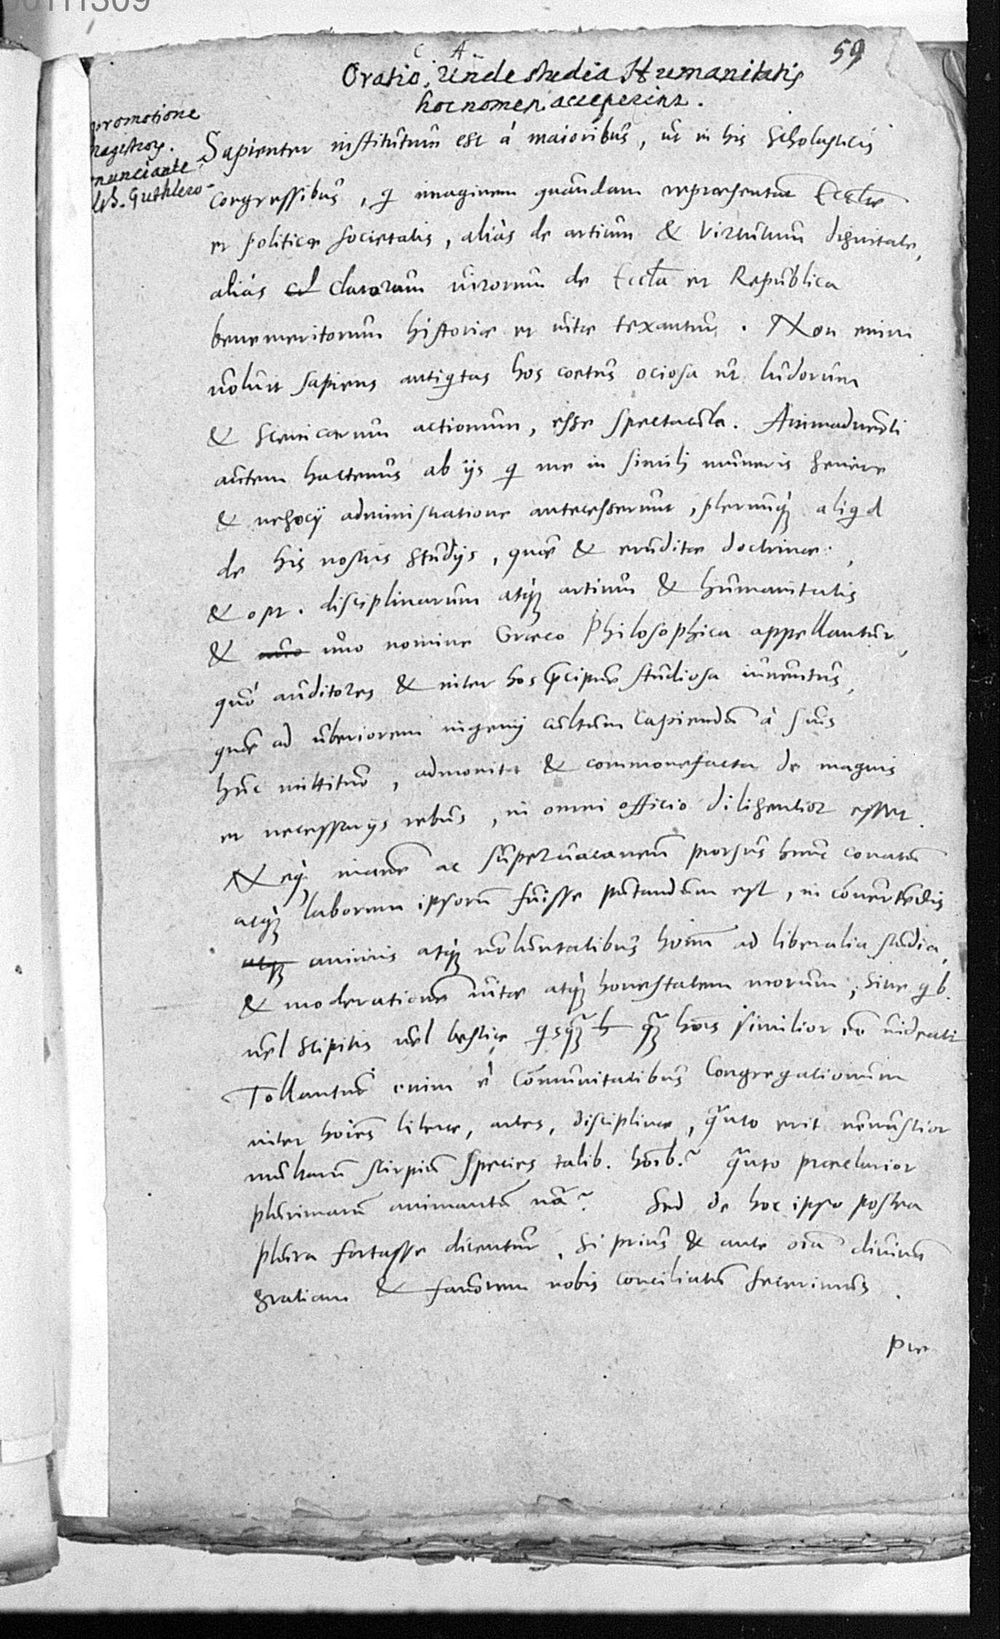 59
C A.
Oratio, Unde studia Humanitatis
hoc nomen acceperint.
promotione
magistror.
nunciante
M. Guthlero
Sapienter institutum est à maioribus, ut in his scholasticis
congressibus, q imaginem quandam repraesentant Eccliae
et politicae societatis, aliàs de artium & virtutum dignitate,
aliàs clarorum virorum de Eccla et Republica
benemeritorum historiae et vitae texantur. Non enim
voluit sapiens antiqtas hos coetus ociosa ut ludorum
& scenicarum actionum, esse spectacula. Animaduerti
autem hactenus ab ijs q me in simili muneris genere
& negocij administratione antecesserunt, plerunq aliqd
de his nostris studijs, quae & eruditae doctrinae,
& opt. disciplinarum atq artium & humanitatis
& uno nomine Graeco Philosophica appellantur,
quo auditores & inter hos praecipue studiosa iuuentus,
quae ad uberiorem ingenij cultum capiendum à suis
huc mittitur, admonita & commonefacta de magnis
et necessarijs rebus, in omni officio diligentior esset.
Neq inanem ac superuacaneum prorsus hunc conatum
atq laborem ipsorum fuisse putandum est, in conuertendis
animis atq voluntatibus hoim ad liberalia studia,
& moderationem vitae atq honestatem morum, sine qb.
vel stipitis vel bestiae qsq q hois similior eē videatur
Tollantur enim è communitatibus congregationum
inter hoies literae, artes, disciplinae, quto erit venustior
multarum stirpium species talib. hoib.? quto praeclarior
plurimarum animantum nā? Sed de hoc ipso postea
plura fortasse dicentur, si prius & ante oia diuinam
gratiam & fauorem nobis conciliatum fecerimus.
Pre